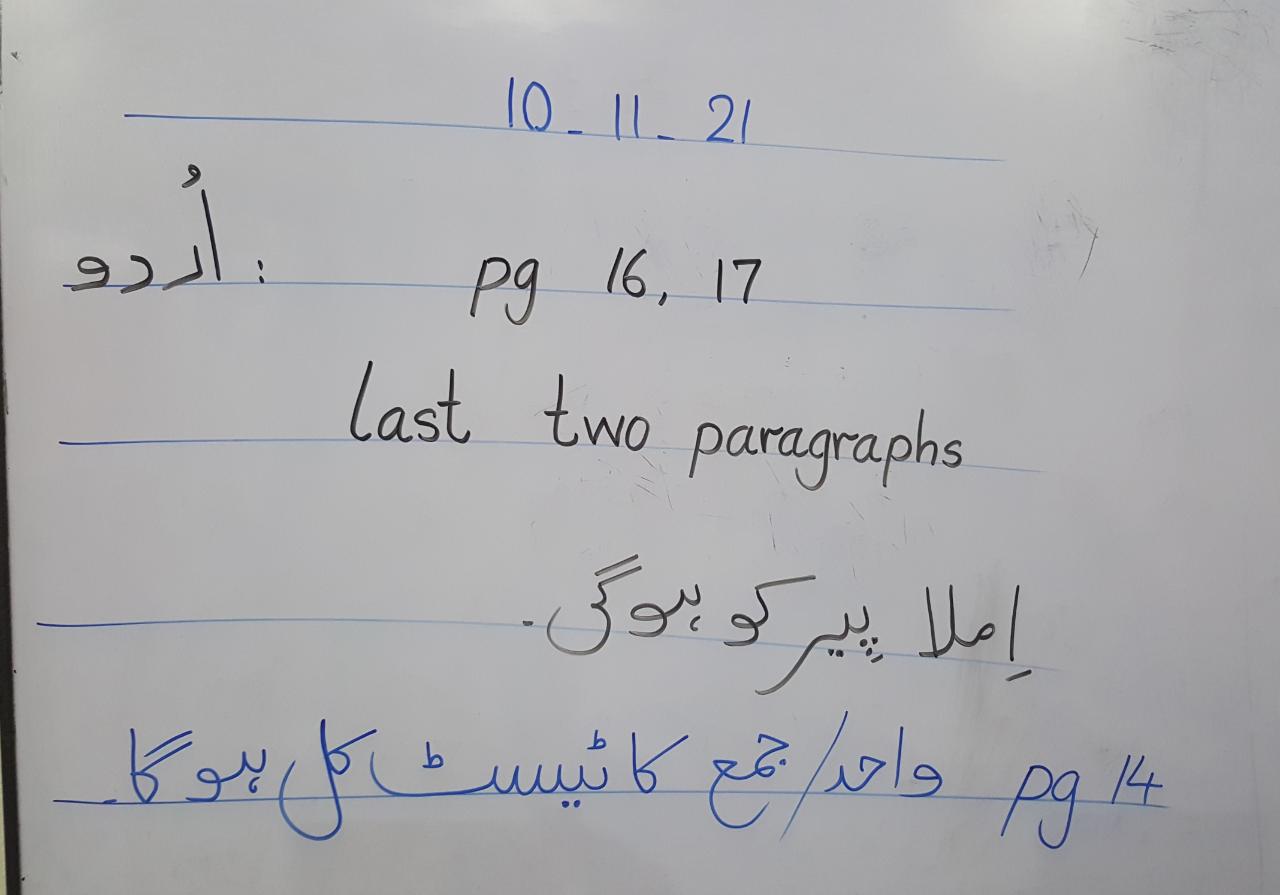 10 - 11 - 21
اُردو : pg 16, 17
last two paragraphs
اِملا پیِر کو ہوگی۔
pg 14 واحد/جمع کا ٹیسٹ کل ہوگا۔